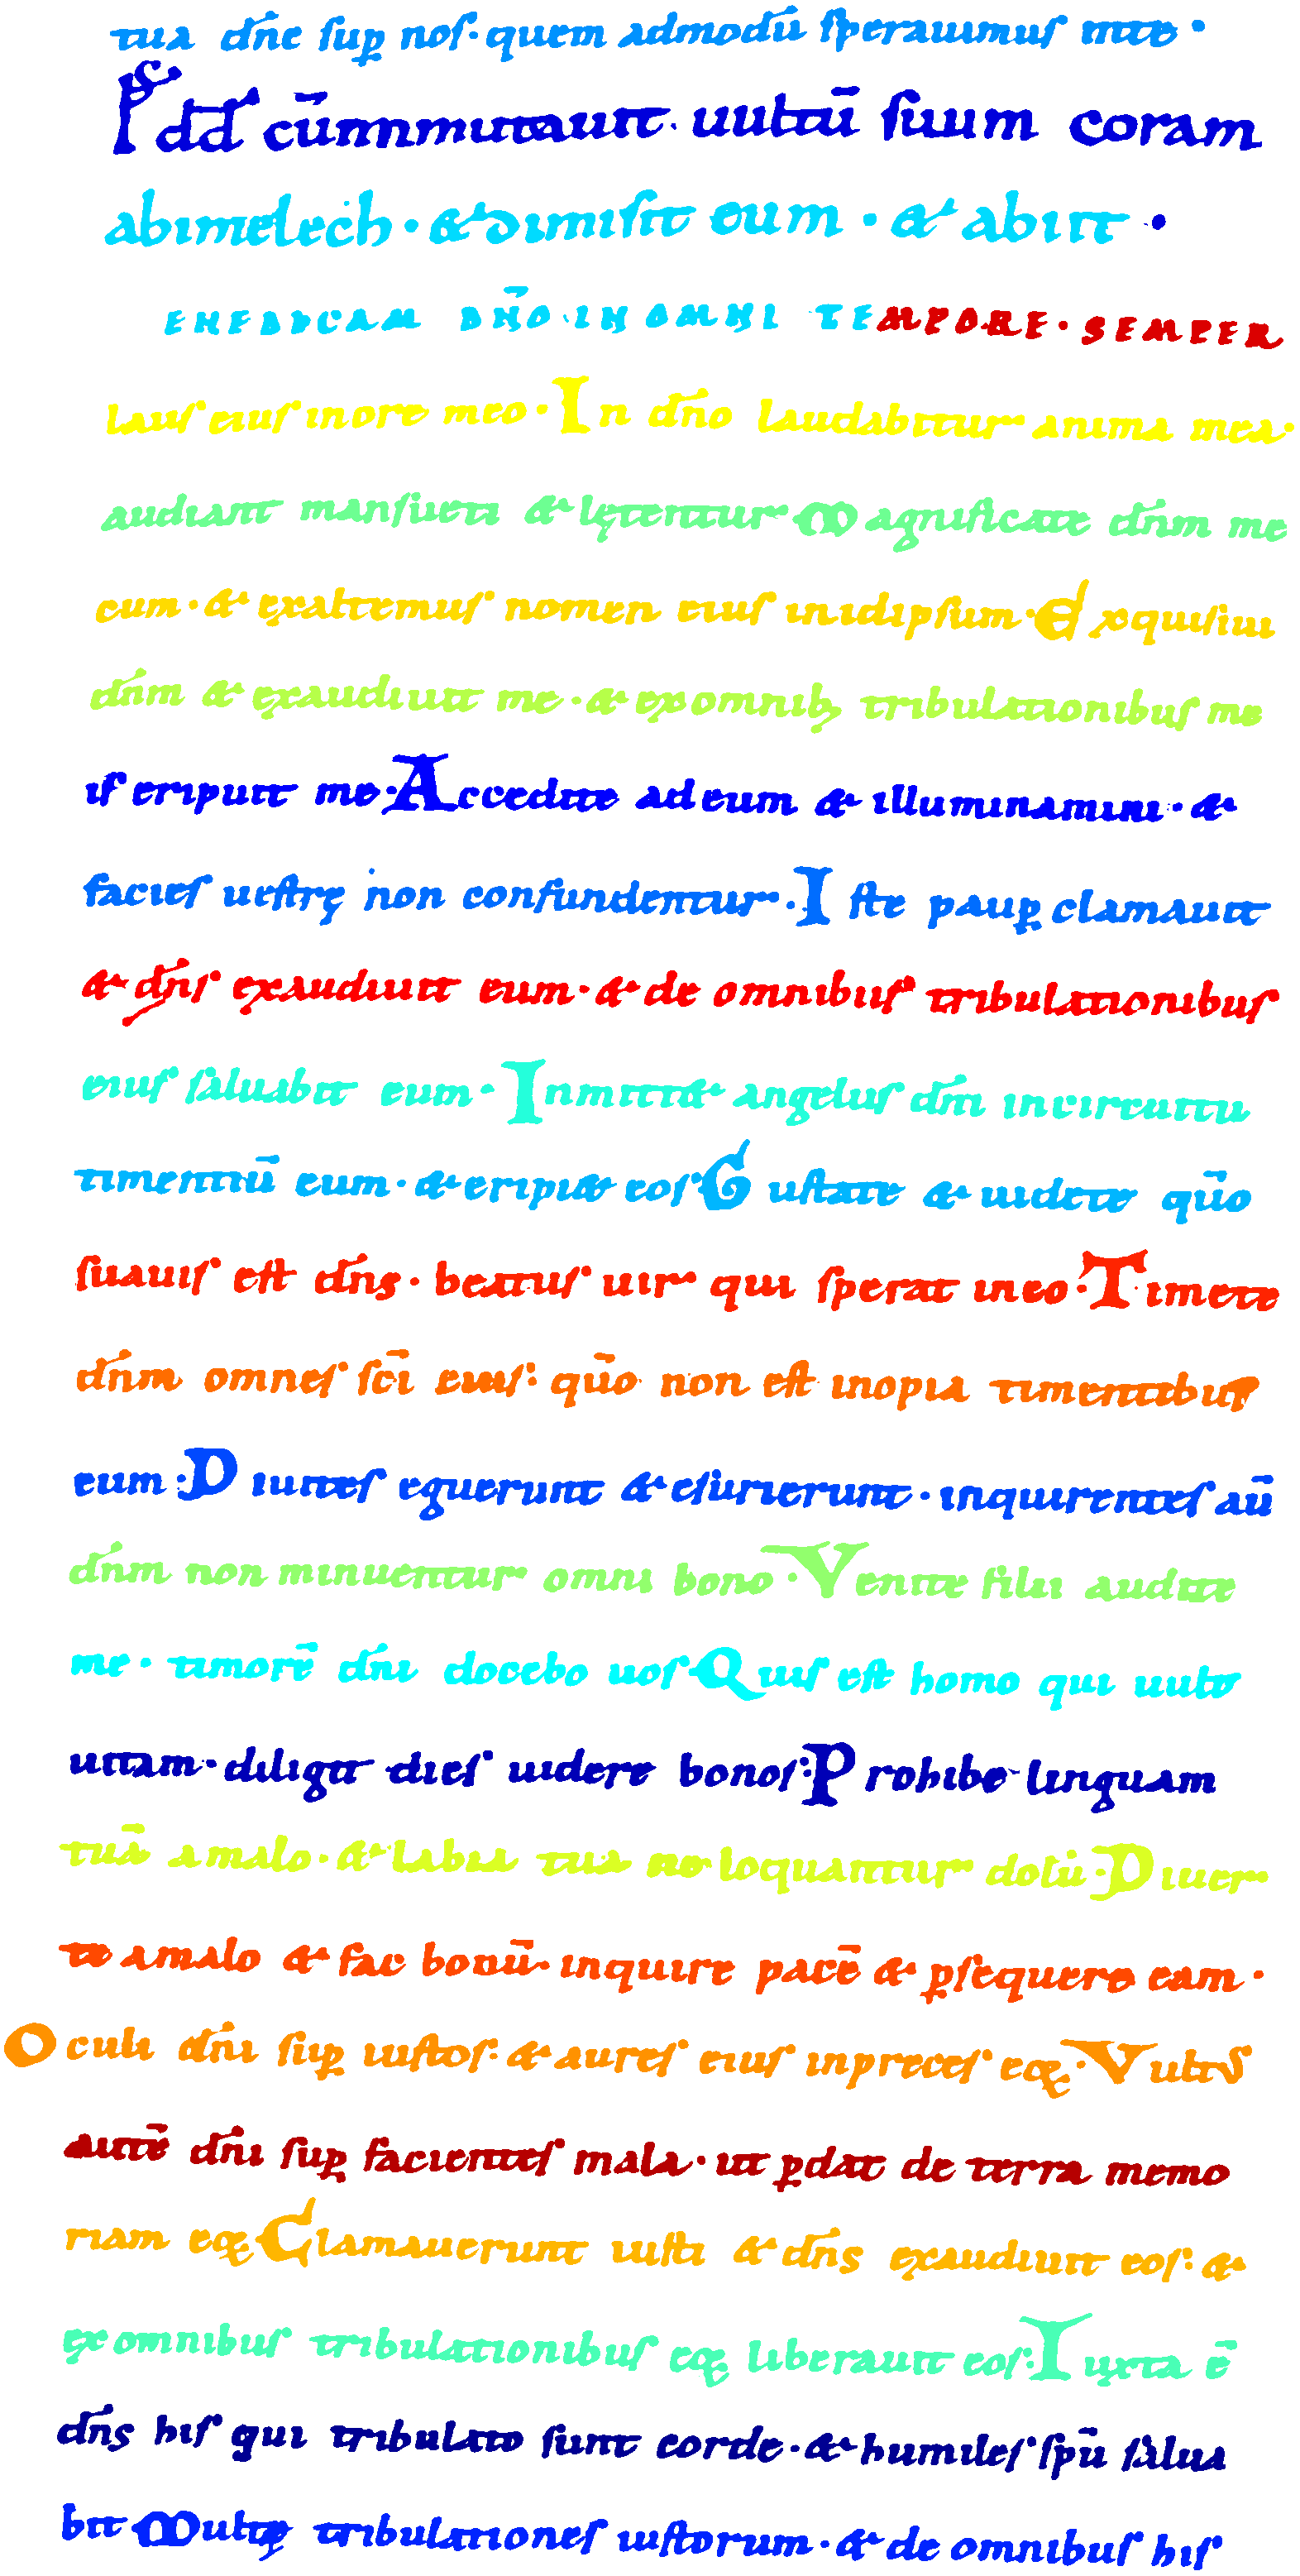 tua dn̄e sup̲ nos · quem admodū sperauimus inte ·
Ps dd cū inmutauit uultū suum coram
abimelech · & dimisit eum · & abiit ·
ENEDICAM DN̄O IN OMNI TEMPORE · SEMPER
laus eius inore meo · In dn̄o laudabitur anima mea ·
audiant mansueti & lętentur Magnificate dn̄m me
cum · & exaltemus nomen eius inidipsum · Exquisiui
dn̄m & exaudiuit me · & ex omnib; tribulationibus me
is eripuit me · Accedite ad eum & illuminamini · &
facies uestrę non confundentur · Iste paup̲ clamauit
& dn̄s exaudiuit eum · & de omnibus tribulationibus
eius saluabit eum · Inmitt& angelus dn̄i incircuitu
timentiū eum · & eripi& eos · Gustate & uidete qūo
suauis est dn̄s · beatus uir qui sperat ineo · Timete
dn̄m omnes sc̄i eius · qūo non est inopia timentibus
eum · Diuites eguerunt & esurierunt · inquirentes aū
dn̄m non minuentur omni bono · Venite filii audite
me · timorē dn̄i docebo uos · Quis est homo qui uult
uitam · diligit dies uidere bonos · Prohibe linguam
tuā amalo · & labia tua ne loquantur dolū · Diuer
te amalo & fac bonū · inquire pacē & p̲sequere eam ·
Oculi dn̄i sup̲ iustos · & aures eius inpreces eoꝝ · Vultus
autē dn̄i sup̲ facientes mala · ut p̲dat de terra memo
riam eoꝝ Clamauerunt iusti & dn̄s exaudiuit eos · &
ex omnibus tribulationibus eoꝝ liberauit eos · Iuxta ē
dn̄s his qui tribulato sunt corde · & humiles sp̄u salua
bit Multę tribulationes iustorum · & de omnibus his